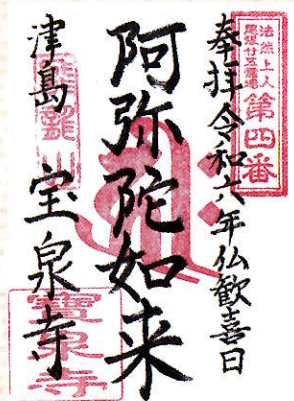 法然上人
尾張廿五霊場
第四番
奉拝令和六年仏歓喜日
阿弥陀如来
津島 宝泉寺
寶泉寺